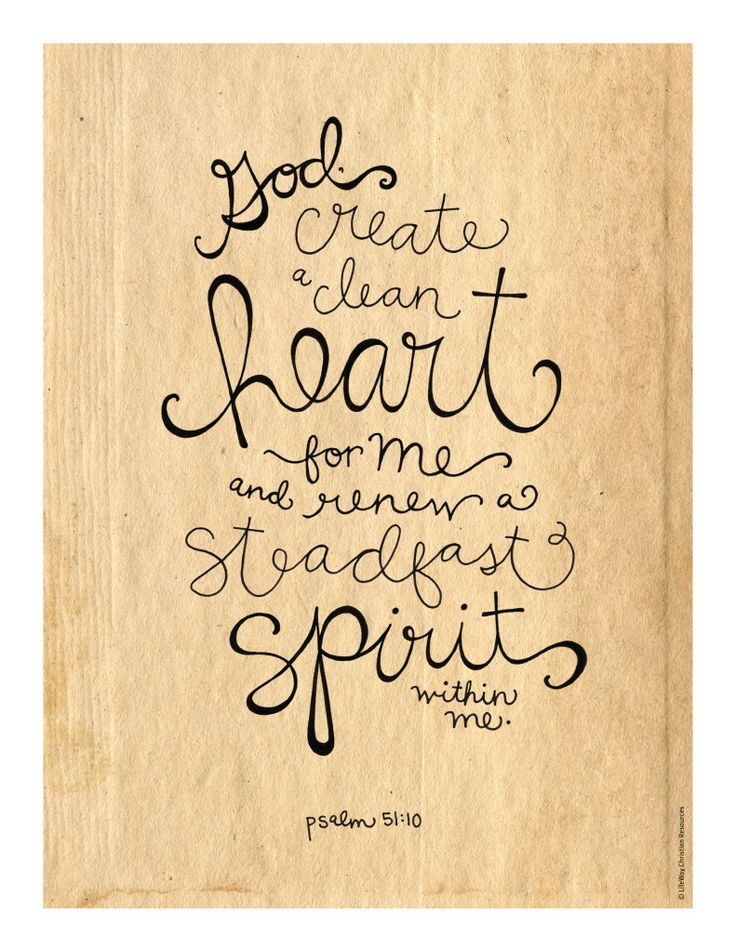 God,
create
a clean
heart
for me
and renew a
steadfast
spirit
within
me.
psalm 51:10
© LifeWay Christian Resources